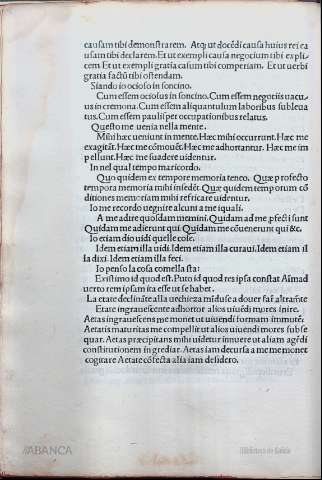 causam tibi demonstrarem. Atq; ut docēdi causa huius rei ca
usam tibi declarem. Et ut exempli causa negocium tibi expli
cem. Et ut exempli gratia casum tibi comperiam. Et ut uerbi
gratia factū tibi ostendam.
Siando io ocioso in soncino.
Cum essem ociosus in soncino. Cum essem negociis uacu
us in cremona. Cum essem aliquantulum laboribus subleua
tus. Cum essem paulisper occupationibus relatus.
Questo me uenia nella mente.
Mihi hæc ueniunt in mente. Hæc mihi occurrunt. Hæc me
exagitāt. Hæc me cōmouēt. Hæc me adhortantur. Hæc me im
pellunt. Hæc me suadere uidentur.
In nel qual tempo maricordo.
Quo quidem ex tempore memoria teneo. Quæ profecto
tempora memoria mihi insedēt. Quæ quidem temporum cō
ditiones memoriam mihi refricare uidentur.
Io me recordo uegnire alcuni a me iquali.
A me adire quosdam memini. Quidam ad me pfecti sunt
Quidam me adierunt qui. Quidam me cōuenerunt qui &c.
Io etiam dio uidi quelle cose.
Idem etiam illa uidi. Idem etiam illa curaui. Idem etiam il
la dixi. Idem etiam illa feci.
Io penso la cosa comella sta:
Existimo id quod est. Puto id quod res ipsa constat Aīmad
uerto rem ipsam ita esse ut se habet.
La etate declināte alla uechieza miduse a douer far altramēte
Etate ingrauescente adhortor alios uiuēdi mores inire.
Aetas ingrauescens me monet ut uiuendi formam immutē.
Aetatis maturitas me compellit ut alios uiuendi mores subse
quar. Aetas præcipitans mihi uidetur innuere ut aliam agēdi
constitutionem ingrediar. Aetas iam decursa a me me monet
cogitare Aetate cōfecta alia iam desidero.
ABANCA
Biblioteca de Galicia